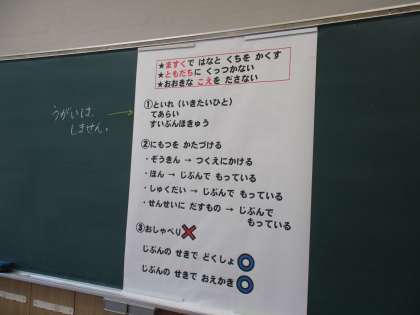 ★ますくで はなと くちを かくす
★ともだちに くっつかない
★おおきな こえを ださない
うがいは、
しません。
①といれ（いきたいひと）
てあらい
すいぶんほきゅう
②にもつを かたづける
・ぞうきん → つくえにかける
・ほん → じぶんで もっている
・しゅくだい → じぶんで もっている
・せんせいに だすもの → じぶんで
もっている
③おしゃべり❌
じぶんの せきで どくしょ⭕
じぶんの せきで おえかき⭕